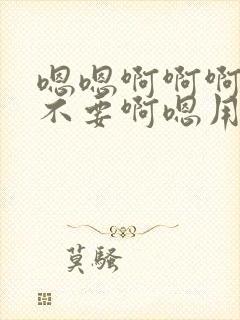 嗯嗯啊啊啊
不要啊嗯用
莫骚